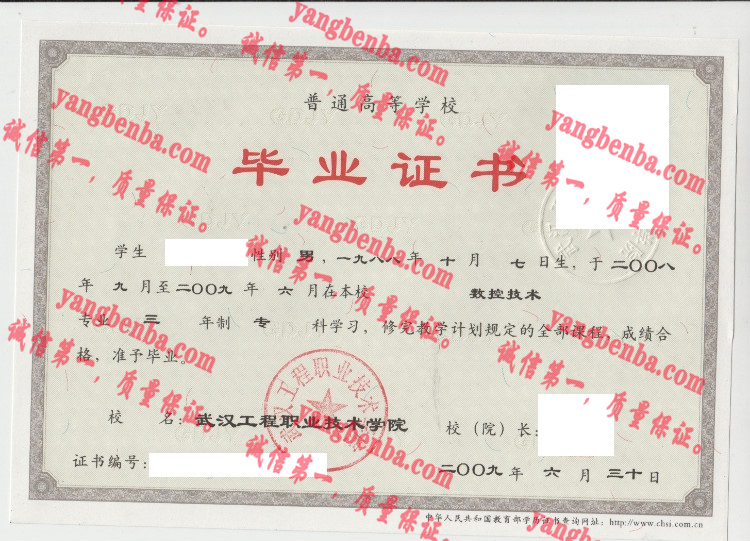 普通高等学校
毕业证书
学生 性别 男，一九八八年 十 月 七 日生，于 二〇〇八
年 九 月至 二〇〇九 年 六 月在本校 数控技术
专业 三 年制 专 科学习，修完教学计划规定的全部课程，成绩合
格，准予毕业。
校 名：武汉工程职业技术学院 校（院）长：
证书编号： 二〇〇九 年 六 月 三十 日
中华人民共和国教育部学历证书查询网址：http://www.chsi.com.cn
武汉工程职业技术学院
yangbenba.com
诚信第一，质量保证。
yangbenba.com
诚信第一，质量保证。
yangbenba.com
诚信第一，质量保证。
yangbenba.com
诚信第一，质量保证。
yangbenba.com
诚信第一，质量保证。
yangbenba.com
诚信第一，质量保证。
yangbenba.com
诚信第一，质量保证。
保证。